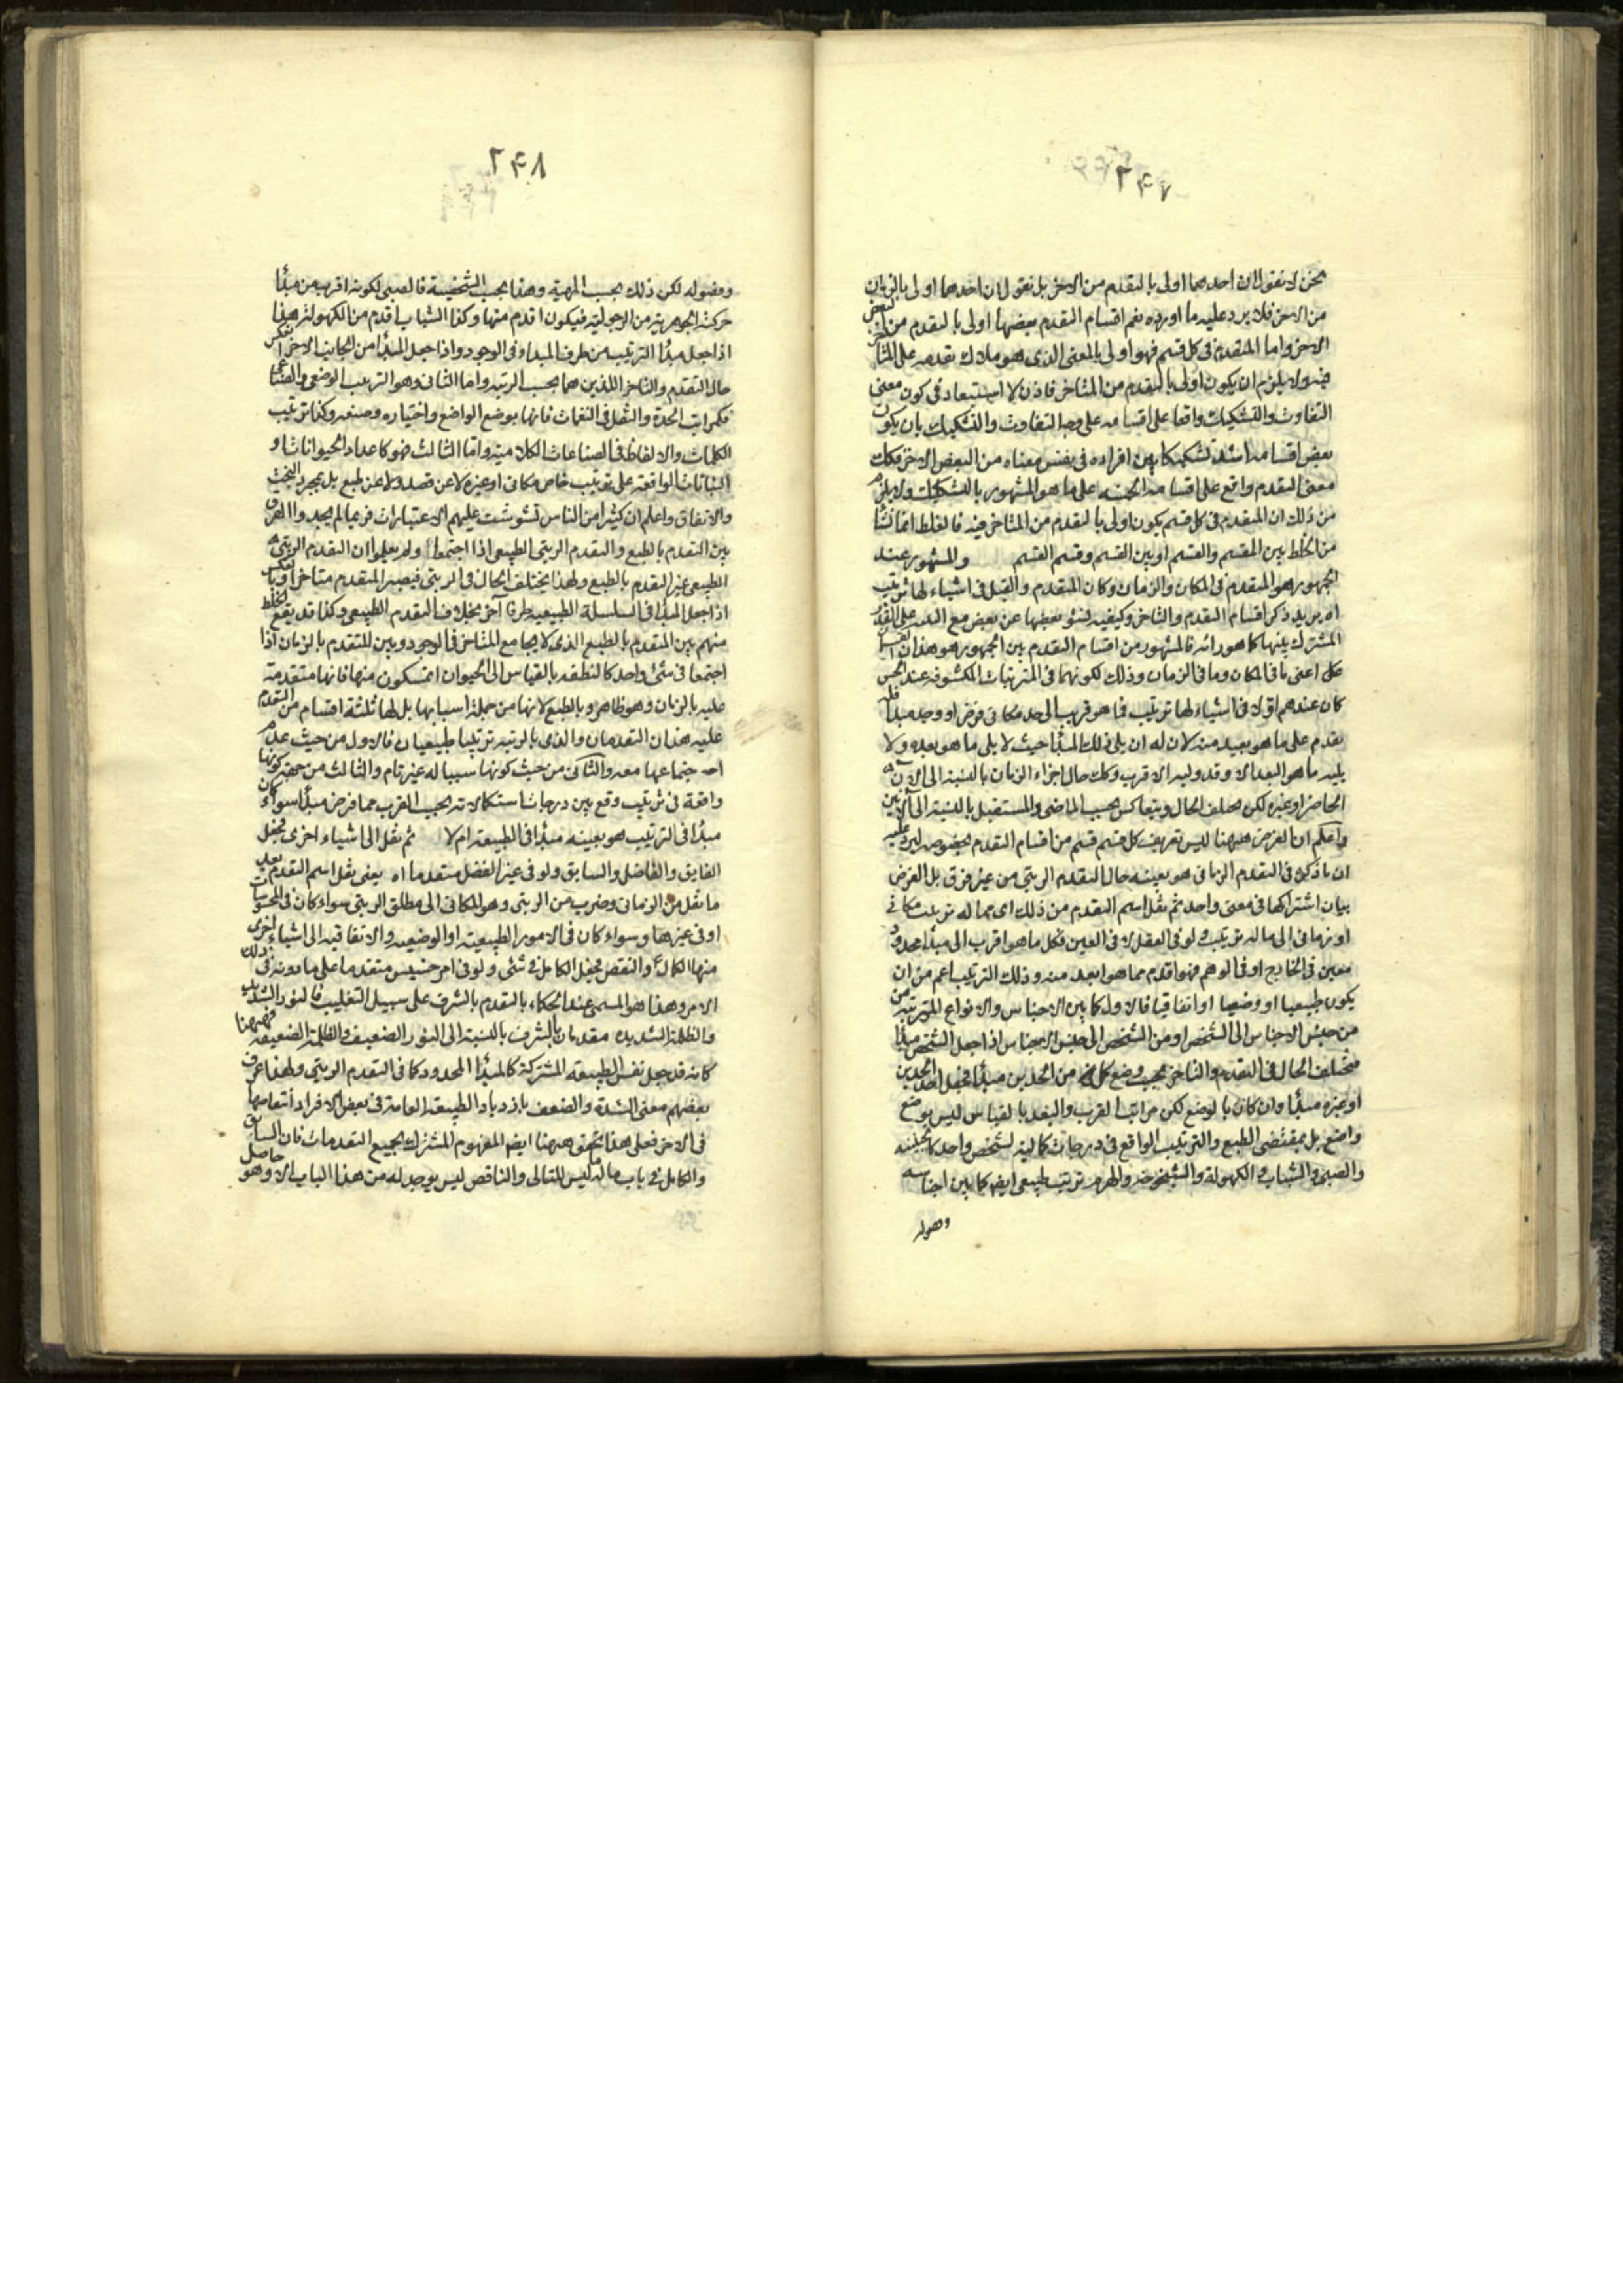 نحن لا نقول ان احدهما اولى بالتقدم من الاخر بل نقول ان احدهما اولى بالزمان
من الاخر فلا يرد عليه ما اورده نعم اقسام التقدم بعضها اولى بالتقدم من بعض
الاخر واما المتقدم فى كل قسم فهو اولى بالمعنى الذى هو ملاك تقدمه على المتاخر
فيه ولا يلزم ان يكون اولى بالتقدم من المتاخر فاذن لا استبعاد فى كون معنى
التفاوت والتشكيك واقعا على اقسامه على وجه التفاوت والتشكيك بان يكون
بعض اقسامه اشد تشكيكا بين افراده فى نفس معناه من البعض الاخر فكك
معنى التقدم واقع على اقسامه الخمسه على ما هو المشهور بالتشكيك ولا يلزم
من ذلك ان المتقدم فى كل قسم يكون اولى بالتقدم من المتاخر فيه فالغلط انما نشا
من الخلط بين المقسم والقسم او بين القسم وقسم القسم والمشهور عند
الجمهور هو المتقدم فى المكان والزمان وكان المتقدم والقبل فى اشياء لها ترتيب
اه يريد ذكر اقسام التقدم والتاخر وكيفيه نشو بعضها عن بعض مع التنبه على القدر
المشترك بينها كما هو دابه فالمشهور من اقسام التقدم بين الجمهور هو هذان القسمان
اعنى ما فى المكان وما فى الزمان وذلك لكونهما فى المترتبات المكشوفه عند الحس
كان عندهم اولا فى اشياء لها ترتيب فما هو قريب الى حد مكانى فرض او وجد مبدا فله
تقدم على ما هو بعيد منه لان له ان يلى ذلك المبدا حيث لا يلى ما هو بعده ولا
يليه ما هو البعد الا وقد وليه الاقرب وكك حال اجزاء الزمان بالنسبة الى الان
الحاضر او غيره لكن يختلف الحال ويتعاكس بحسب الماضى والمستقبل بالنسبة الى الانين
واعلم ان الغرض ههنا ليس تعريف كل قسم قسم من اقسام التقدم بخصوصه ليرد عليه
ان ما ذكر فى التقدم الزمانى هو بعينه حال التقدم الرتبى من غير فرق بل الغرض
بيان اشتراكها فى معنى واحد ثم نقل اسم التقدم من ذلك اى مما له ترتيب مكانى
او زمانى الى ما له ترتيب ولو فى العقل لا فى العين فكل ما هو اقرب الى مبدا محدود
معين فى الخارج او فى الوهم فهو اقدم مما هو ابعد منه وذلك الترتيب اعم من ان
يكون طبيعيا او وضعيا او اتفاقيا فالاول كما بين الاجناس والانواع المترتبه من
من جنس الاجناس الى الشخص او من الشخص الى جنس الاجناس اذا جعل الشخص مبدا
فيختلف الحال فى التقدم والتاخر بحسب وضع كل من الحدين مبدا فجعل احد الحدين
او غيره مبدا وان كان بالوضع لكن مراتب القرب والبعد بالقياس ليس بوضع
واضع بل بمقتضى الطبع والترتيب الواقع فى درجات كمالية لشخص واحد كالجنينيه
والصبى والشباب والكهولة والشيخوخه والهرم ترتيب طبيعى ايضا كما بين اجناسه
وفصوله
٢۴٨
وفصوله لكن ذلك بحسب المهية وهذا بحسب الشخصية فالصبى لكونه اقرب من مبدا
حركته الجوهرية من الرجولية فيكون اقدم منها وكذا الشباب اقدم من الكهولة هذا
اذا جعل مبدا الترتيب من طرف المبداء فى الوجود واذا جعل المبدا من الجانب الاخر انعكس
حال التقدم والتاخر اللذين هما بحسب الرتبه واما الثانى وهو الترتيب الوضعى والصناعى
فكمراتب الحدة والثقل فى النغمات فانها بوضع الواضع واختياره وصنعه وكذا ترتيب
الكلمات والالفاظ فى الصناعات الكلامية واما الثالث فهو كاعداد الحيوانات او
النباتات الواقعه على ترتيب خاص مكانى او غيره لا عن قصد ولا عن طبع بل بمجرد البخت
والاتفاق واعلم ان كثيرا من الناس تشوشت عليهم الاعتبارات فربما لم يجدوا الفرق
بين التقدم بالطبع والتقدم الرتبى الطبيعى اذا اجتمعا ولم يعلموا ان التقدم الرتبى
الطبيعى غير التقدم بالطبع ولهذا يختلف الحال فى الرتبى فيصير المتقدم متاخرا وبالعكس
اذا جعل المبدا فى السلسلة الطبيعيه طرفا آخر بخلاف التقدم الطبيعى وكذا قد يقع الخلط
منهم بين المتقدم بالطبع الذى لا يجامع المتاخر فى الوجود وبين المتقدم بالزمان اذا
اجتمعا فى شئ واحد كالنطفه بالقياس الى الحيوان المتكون منها فانها متقدمة
عليه بالزمان وهو ظاهر وبالطبع لانها من جملة اسبابها بل لها ثلثة اقسام من التقدم
عليه هذان التقدمان والذى بالرتبه ترتيبا طبيعيا فالاول من حيث عدم
اجتماعها معه والثانى من حيث كونها سببا له غير تام والثالث من جهة كونها
واقعة فى ترتيب وقع بين درجات استكمالاته بحسب القرب مما فرض مبدا سواء كان
مبدا فى الترتيب هو بعينه مبدا فى الطبيعه ام لا ثم نقل الى اشياء اخرى فجعل
الفايق والفاضل والسابق ولو فى غير الفضل متقدما اه يعنى نقل اسم التقدم بعد
ما نقل من الزمانى وضرب من الرتبى وهو المكانى الى مطلق الرتبى سواء كان فى المحسوسات
او فى غيرها وسواء كان فى الامور الطبيعية او الوضعيه والاتفاقيه الى اشياء اخرى
منها الكمال والنقص فجعل الكامل فى شئ ولو فى امر خسيس متقدما على ما دونه فى ذلك
الامر وهذا هو المسمى عند الحكماء بالتقدم بالشرف على سبيل التغليب فالنور الشديد
والظلمة الشديده مقدمان بالشرف بالنسبة الى النور الضعيف والظلمة الضعيفه فههنا
كانه قد جعل نفس الطبيعه المشتركة كالمبدا المحدود كما فى التقدم الرتبى ولهذا عرف
بعضهم معنى الشدة والضعف بازدياد الطبيعه العامه فى بعض الافراد وانتقاصها
فى الاخر فعلى هذا تحقق ههنا ايضا المفهوم المشترك بجميع التقدمات فان السابق
والكامل فى باب ماله ليس للتالى والناقص ليس يوجد له من هذا الباب الا وهو حاصل